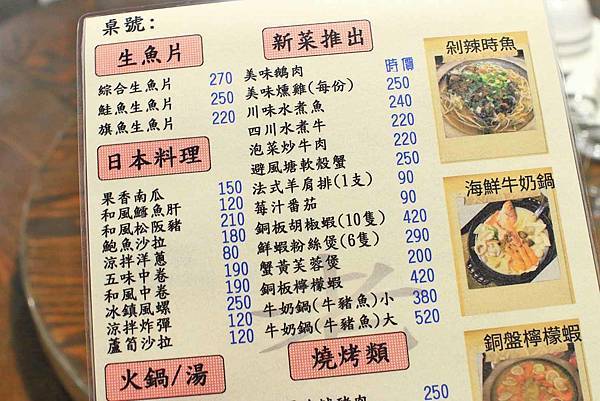 桌號:
生魚片
綜合生魚片 270
鮭魚生魚片 250
旗魚生魚片 220
日本料理
果香南瓜 150
和風鱈魚肝 120
和風松阪豬 210
鮑魚沙拉 180
涼拌洋蔥 80
五味中卷 190
和風中卷 190
冰鎮風螺 250
涼拌炸彈 120
蘆筍沙拉 120
火鍋/湯
新菜推出
美味鵝肉 時價
美味燻雞(每份) 250
川味水煮魚 240
四川水煮牛 220
泡菜炒牛肉 220
避風塘軟殼蟹 250
法式羊肩排(1支) 90
莓汁番茄 90
銅板胡椒蝦(10隻) 420
鮮蝦粉絲煲(6隻) 290
蟹黃芙蓉煲 200
銅板檸檬蝦 420
牛奶鍋(牛豬魚)小 380
牛奶鍋(牛豬魚)大 520
燒烤類
豬肉 250
剁辣時魚
海鮮牛奶鍋
銅盤檸檬蝦